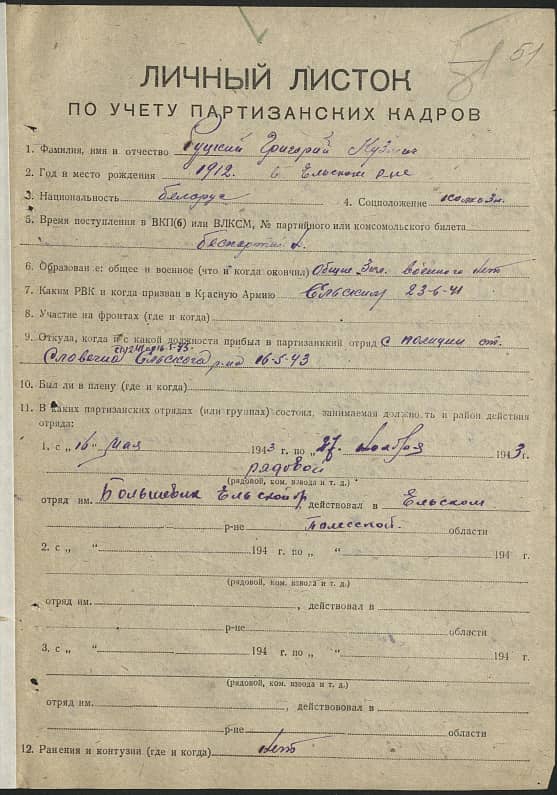 51
ЛИЧНЫЙ ЛИСТОК
ПО УЧЕТУ ПАРТИЗАНСКИХ КАДРОВ
1. Фамилия, имя и отчество Руцкий Григорий
2. Год и место рождения 1912. в Ельском р-не
3. Национальность белорус 4. Соцположение
5. Время поступления в ВКП(б) или ВЛКСМ, № партийного или комсомольского билета
6. Образование: общее и военное (что и когда окончил) Общее 3 кл. военного нет
7. Каким РВК и когда призван в Красную Армию Ельским 23-6-41
8. Участие на фронтах (где и когда)
9. Откуда, когда и с какой должности прибыл в партизанский отряд с полиции от.
Ельского р-на 16-5-43
10. Был ли в плену (где и когда)
11. В каких партизанских отрядах (или группах) состоял, занимаемая должность и район действия
отряда:
1. с „ 16 “ мая 1943 г. по „ 27. ноября 1943 г.
рядовой
(рядовой, ком. взвода и т. д.)
отряд им. Большевик Ельской бр. действовал в Ельском
р-не Полесской. области
2. с „ “ 194 г. по „ “ 194 г.
(рядовой, ком. взвода и т. д.)
отряд им. , действовал в
р-не области
3. с „ “ 194 г. по „ “ 194 г.
(рядовой, ком. взвода и т. д.)
отряд им. , действововал в
р-не области
12. Ранения и контузии (где и когда) нет